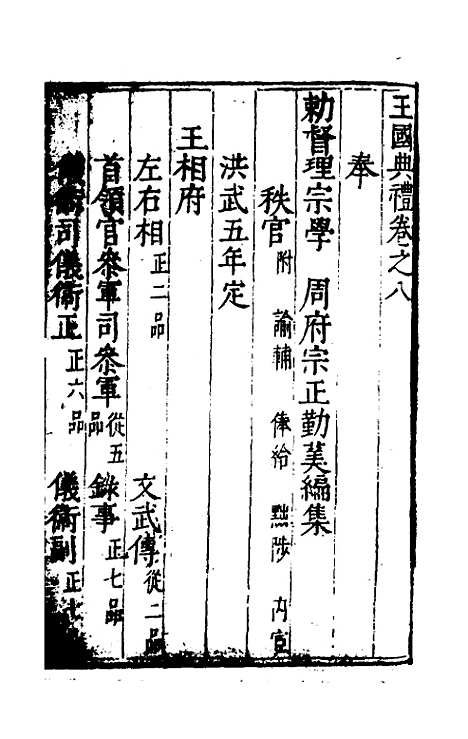 王國典禮卷之八
奉
勅督理宗學 周府宗正勤羙編集
秩官 附 諭輔 俸給 黜陟 内官
洪武五年定
王相府
左右相 正二品 文武傅 從二品
首領官叅軍司叅軍 從五品 錄事 正七品
儀衛司儀衛正 正六品 儀衛副 正七